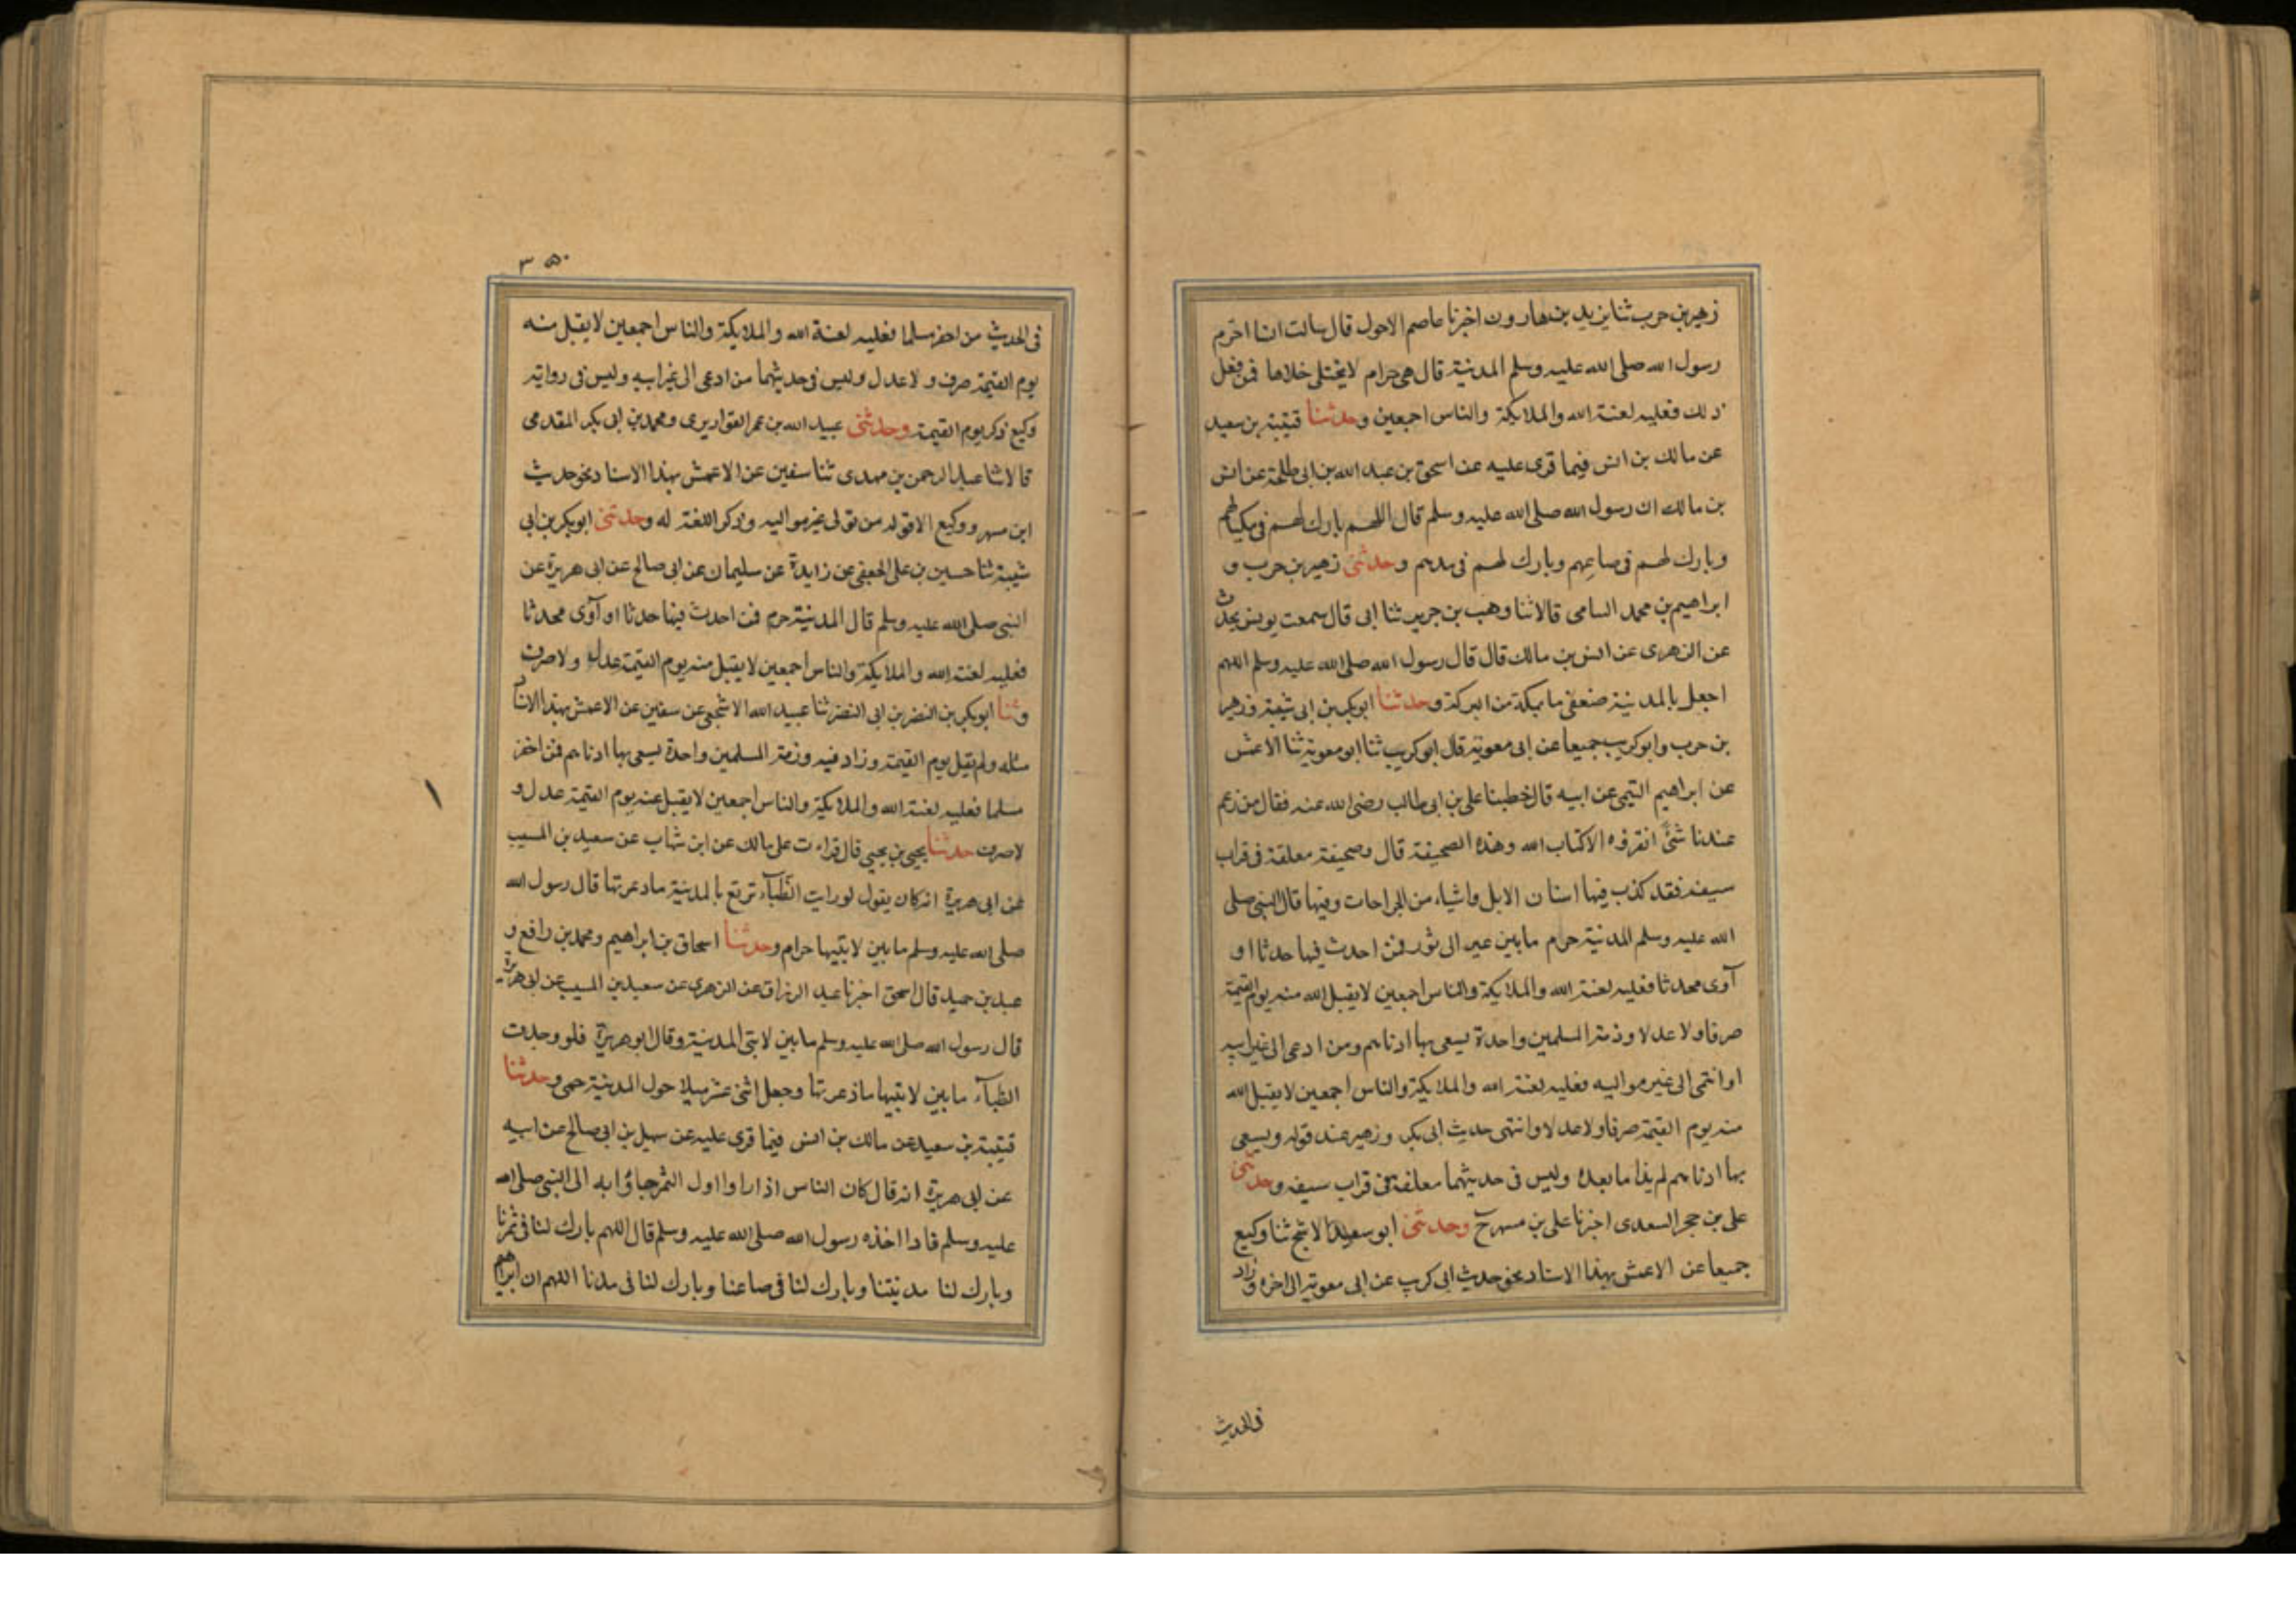 زهير بن حرب ثنا يزيد بن هارون اخبرنا عاصم الاحول قال سالت انسا احرم
رسول الله صلى الله عليه وسلم المدينة قال هي حرام لا يختلى خلاها فمن فعل
ذلك فعليه لعنة الله والملايكة والناس اجمعين وحدثنا قتيبة بن سعيد
عن مالك بن انس فيما قرى عليه عن اسحق بن عبد الله بن ابى طلحة عن انس
بن مالك ان رسول الله صلى الله عليه وسلم قال اللهم بارك لهم فى مكيالهم
وبارك لهم فى صاعهم وبارك لهم فى مدهم وحدثنى زهير بن حرب و
ابراهيم بن محمد السامى قالا ثنا وهب بن جرير ثنا ابى قال سمعت يونس يحدث
عن الزهرى عن انس بن مالك قال قال رسول الله صلى الله عليه وسلم اللهم
اجعل بالمدينة ضعفى ما بمكة من البركة وحدثنا ابو بكر بن ابى شيبة وزهير
بن حرب وابو كريب جميعا عن ابى معوية قال ابو كريب ثنا ابو معوية ثنا الاعمش
عن ابراهيم التيمى عن ابيه قال خطبنا على بن ابى طالب رضى الله عنه فقال من زعم
عندنا شئ انقرؤه الا كتاب الله وهذه الصحيفة قال وصحيفة معلقة فى قراب
سيفه فقد كذب فيها اسنان الابل واشياء من الجراحات وفيها قال النبى صلى
الله عليه وسلم المدينة حرام ما بين عير الى ثور فمن احدث فيها حدثا او
آوى محدثا فعليه لعنة الله والملايكة والناس اجمعين لا يقبل الله منه يوم القيمة
صرفا ولا عدلا وذمة المسلمين واحدة يسعى بها ادناهم ومن ادعى الى غير ابيه
او انتمى الى غير مواليه فعليه لعنة الله والملايكة والناس اجمعين لا يقبل الله
منه يوم القيمة صرفا ولا عدلا وانتهى حديث ابى بكر وزهير عند قوله ويسعى
بها ادناهم لم يذكرا ما بعده وليس فى حديثهما معلقة فى قراب سيفه وحدثنى
على بن حجر السعدى اخبرنا على بن مسهر ح وحدثنى ابو سعيد الاشج ثنا وكيع
جميعا عن الاعمش بهذا الاسناد نحو حديث ابى كريب عن ابى معوية الى اخره وزاد
فى الحديث
٣٥٠
فى الحديث من اخفر مسلما فعليه لعنة الله والملايكة والناس اجمعين لا يقبل منه
يوم القيمة صرف ولا عدل وليس فى حديثهما من ادعى الى غير ابيه وليس فى رواية
وكيع ذكر يوم القيمة وحدثنى عبيد الله بن عمر القواريرى ومحمد بن ابى بكر المقدمى
قالا ثنا عبد الرحمن بن مهدى ثنا سفين عن الاعمش بهذا الاسناد نحو حديث
ابن مسهر ووكيع الا قوله من تولى غير مواليه وذكر اللعنة له وحدثنى ابو بكر بن ابى
شيبة ثنا حسين بن على الجعفى عن زايدة عن سليمان عن ابى صالح عن ابى هريرة عن
النبى صلى الله عليه وسلم قال المدينة حرم فمن احدث فيها حدثا او آوى محدثا
فعليه لعنة الله والملايكة والناس اجمعين لا يقبل منه يوم القيمة عدل ولا صرف
وثنا ابو بكر بن النضر بن ابى النضر ثنا عبيد الله الاشجعى عن سفين عن الاعمش بهذا الاسناد
مثله ولم يقل يوم القيمة وزاد فيه وذمة المسلمين واحدة يسعى بها ادناهم فمن اخفر
مسلما فعليه لعنة الله والملايكة والناس اجمعين لا يقبل عنه يوم القيمة عدل و
لا صرف حدثنا يحيى بن يحيى قال قراءت على مالك عن ابن شهاب عن سعيد بن المسيب
عن ابى هريرة انه كان يقول لو رايت الظبآء ترتع بالمدينة ماذعرتها قال رسول الله
صلى الله عليه وسلم ما بين لابتيها حرام وحدثنا اسحاق بن ابراهيم ومحمد بن رافع و
عبد بن حميد قال اسحق اخبرنا عبد الرزاق عن الزهرى عن سعيد بن المسيب عن ابى هريرة
قال رسول الله صلى الله عليه وسلم ما بين لابتى المدينة وقال ابو هريرة فلو وجدت
الظبآء ما بين لابتيها ماذعرتها وجعل اثنى عشر ميلا حول المدينة حمى وحدثنا
قتيبة بن سعيد عن مالك بن انس فيما قرى عليه عن سهيل بن ابى صالح عن ابيه
عن ابى هريرة انه قال كان الناس اذا راوا اول الثمر جاؤا به الى النبى صلى الله
عليه وسلم فاذا اخذه رسول الله صلى الله عليه وسلم قال اللهم بارك لنا فى ثمرنا
وبارك لنا مدينتنا وبارك لنا فى صاعنا وبارك لنا فى مدنا اللهم ان ابراهيم